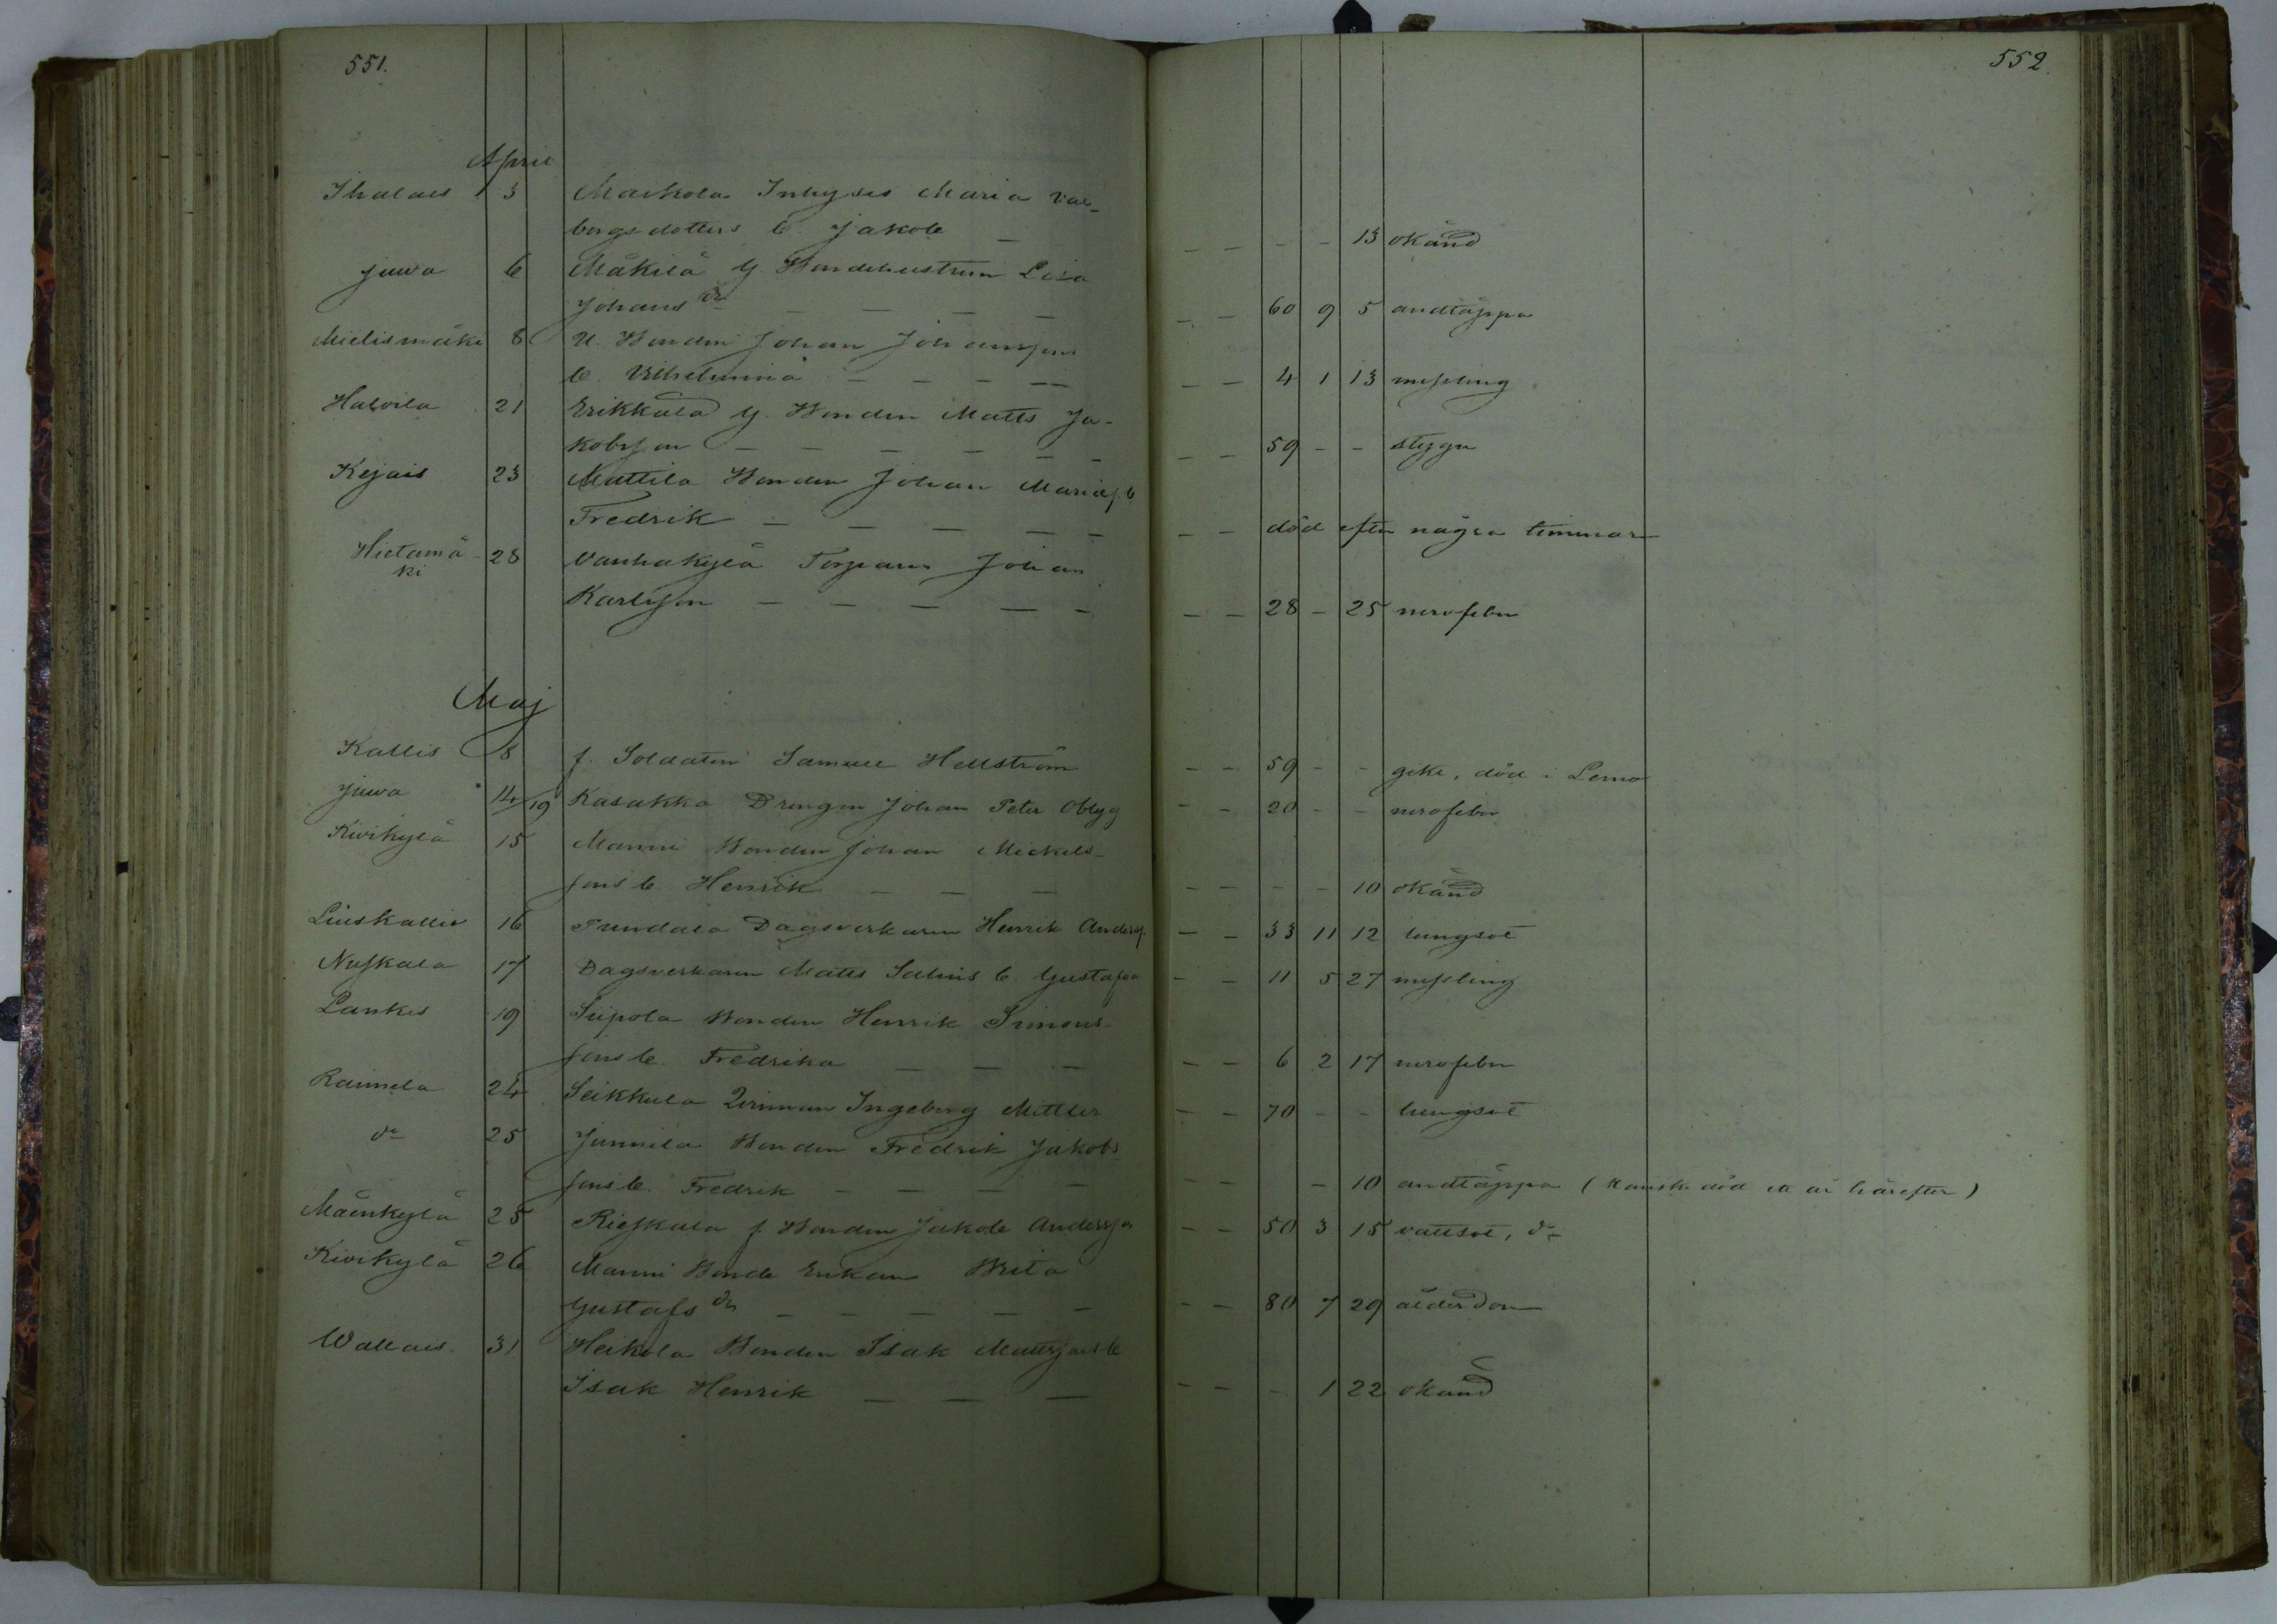 551.
552.
April
Ihalais 3 Maikola Inhyses Maria Val-
borgsdotters b. Jakob — — — — — 13 okänd
Juva 6 Mäkilä G. Bondehustrun Lisa
Johans dr — — — — — — 60 9 5 andtäppa
Mielismäki 8 U. Bonden Johan Johanssons
b. Vilhelmina — — — — — — 4 1 13 messling
Haloila 21 Erikkala G. Bonden Matts Ja-
kobsson — — — — — — — — 59 - - stygn
Kejais 23 Mattila Bonden Johan Mariæ s. b
Fredrik — — — — — — — död efter några timmar
Hietamä- 28 Vanhakylä Torparen Johan
ki
Karlsson — — — — — — — 28 - 25 nervfeber
Maj
Kallis 8 f. Soldaten Samuel Hellström — — 59 - - gikt, död i Lemo
Juva 14/19 Kasakka Drängen Johan Peter Oblyg — — 20 - - nervfeber
Kivikylä 15 Manni Bonden Johan Mickels-
sons b. Henrik — — — — — - - 10 okänd
Linskallio 16 Tundala Dagsverkaren Henrik Anderss. — — 33 11 12 lungsot
Nuskala 17 Dagsverkaren Matts Salins b. Gustafva — — 11 5 27 messling
Lankis 19 Siipola Bonden Henrik Simons-
sons b. Fredrika — — — — — 6 2 17 nervfeber
Raimela 24 Seikkula Qvinnan Ingeborg Mattler — — 70 - - lungsot
do 25 Junnila Bonden Fredrik Jakobs
sons b. Fredrik — — — — — — - 10 andtäppa (kanske död ett år härefter)
Mäenkylä 25 Rieskala f. Bonden Jakob Andersson — — 50 3 15 vattsot, do
Kivikylä 26 Manni Bonde Enkan Brita
Gustafs dr — — — — — — — 80 7 29 ålderdom
Wallais 31 Heikola Bonden Isak Mattssons b
Isak Henrik — — — — — - 1 22 okänd